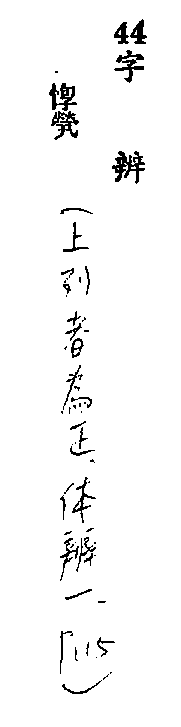 44字 辨
惸煢
(上列者為正、体辨一、P115)